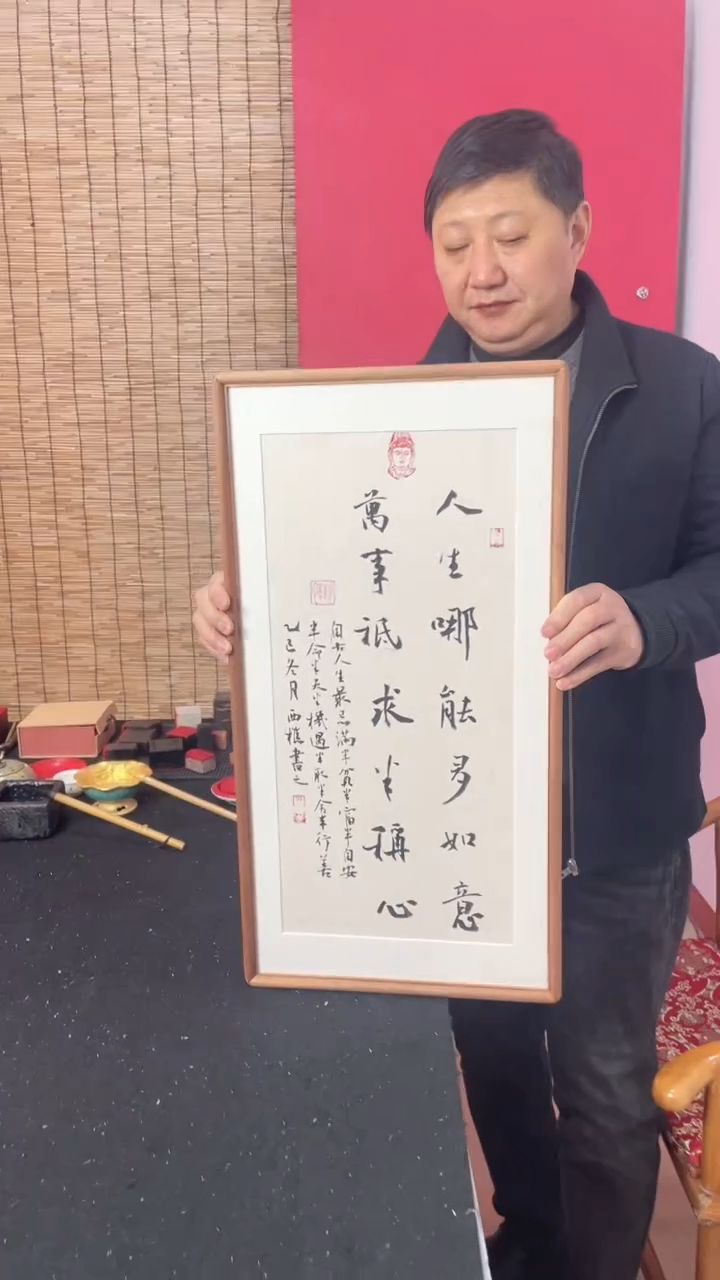 人生哪能多如意
萬事祗求半稱心
自古人生最忌滿半貧半富半自安
半命半天半機遇半取半舍半行善
乙巳冬月西樵書之